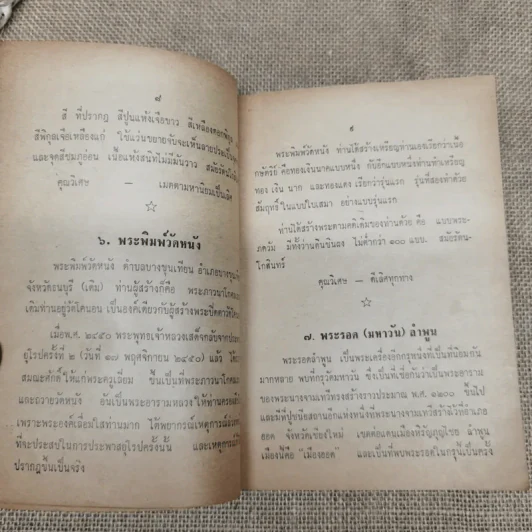 ๘
สี ที่ปรากฏ สีปูนแห้งเจือขาว สีเหลืองดอกพิกุล
สีพิกุลเจือเหลืองแก่ ใช้แว่นขยายจับจะเห็นลายประ
และจุดสีชมภูอ่อน เนื้อแห้งสนิทไม่มีมันวาว สมัยรัตน
คุณวิเศษ — เมตตามหานิยมเป็นเลิศ
☆
๖. พระพิมพ์วัดหนัง
พระพิมพ์วัดหนัง ตำบลบางขุนเทียน อำเภอบางขุน
จังหวัดธนบุรี (เดิม) ท่านผู้สร้างก็คือ พระภาวนาโกศล
เดิมท่านอยู่วัดโคนอน เป็นองค์เดียวกับผู้สร้างพระปิดตาวัด
เมื่อพ.ศ. ๒๔๕๐ พระพุทธเจ้าหลวงเสด็จกลับจากประ
ยุโรปครั้งที่ ๒ (วันที่ ๑๗ พฤศจิกายน ๒๔๕๐) แล้ว ได้
สมณะศักดิ์ให้แก่พระครูเอี่ยม ขึ้นเป็นที่พระภาวนาโกศล
และถวายวัดหนัง อันเป็นพระอารามหลวง ให้ท่านครอง
เพราะพระองค์เลื่อมใสท่านมาก ได้พยากรณ์เหตุการณ์ล่วง
ที่จะประสบในการประพาสยุโรปครั้งนั้น และเหตุการณ์
ปรากฏขึ้นเป็นจริง
๙
พระพิมพ์วัดหนัง ท่านได้สร้างเหรียญท่านเองเรียกว่าเนื้อ
กษัตริย์ คือทองเงินนาคแบบหนึ่ง กับอีกแบบหนึ่งท่านทำเหรียญ
ทอง เงิน นาก และทองแดง เรียกว่ารุ่นแรก รุ่นที่สองทำด้วย
สัมฤทธิ์ ในแบบใบเสมา อย่างแบบรุ่นแรก
ท่านได้สร้างพระตามคติเดิมของท่านด้วย คือ แบบพระ-
ภควัม มีทั้งว่านดินชินผง ไม่ต่ำกว่า ๑๐๐ แบบ. สมัยรัตน-
โกสินทร์
คุณวิเศษ — ดีเลิศทุกทาง
☆
๗. พระรอด (มหาวัน) ลำพูน
พระรอดลำพูน เป็นพระเครื่องจากกรุหนึ่งที่เป็นที่นิยมกัน
มากหลาย พบที่กรุวัดมหาวัน ซึ่งเป็นที่เชื่อกันว่าเป็นพระอาราม
ของพระนางจามเทวีทรงสร้างราวประมาณ พ.ศ. ๑๒๐๐ ขึ้นไป
และมีที่ปูชนียสถานอีกแห่งหนึ่งที่พระนางจามเทวีสร้างไว้ที่อำเภอ
ฮอด จังหวัดเชียงใหม่ เขตต่อแดนเมืองหิรัญภุญไชย ลำพูน
เมืองนี้คือ "เมืองฮอด" และเป็นที่พบพระรอดในกรุนี้เป็นครั้ง